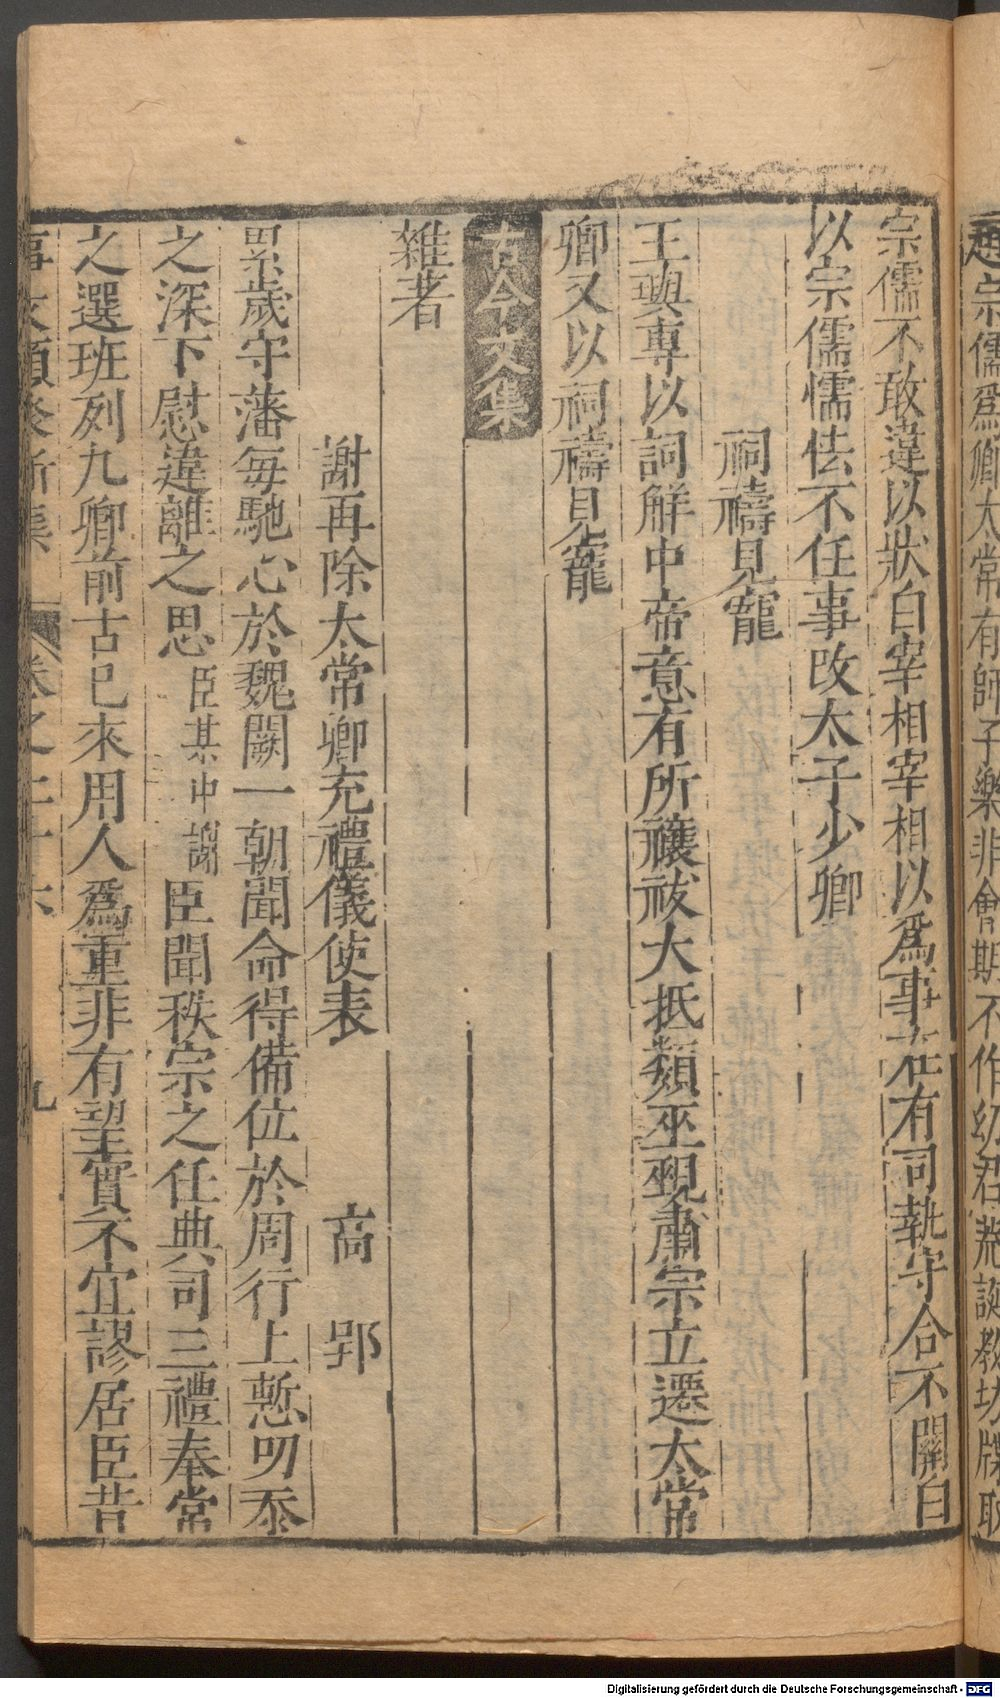 趙宗儒爲卿太常有師子樂非會期不作幼君荒誕教坊牒取
宗儒不敢違以狀白宰相宰相以爲事在有司執守合不關白
以宗儒懦怯不任事改太子少卿
祠禱見寵
王璵專以祠解中帝意有所禳祓大抵類巫覡肅宗立遷太常
卿又以祠禱見寵
古今文集
雜著
謝再除太常卿充禮儀使表 高郢
累歲守藩每馳心於魏闕一朝聞命得備位於周行上慙叨忝
之深下慰違離之思臣某中謝臣聞秩宗之任典司三禮奉常
之選班列九卿前古已來用人爲重非有望實不宜謬居臣昔
事文類聚新集 卷之二十六 九
Digitalisierung gefördert durch die Deutsche Forschungsgemeinschaft - DFG